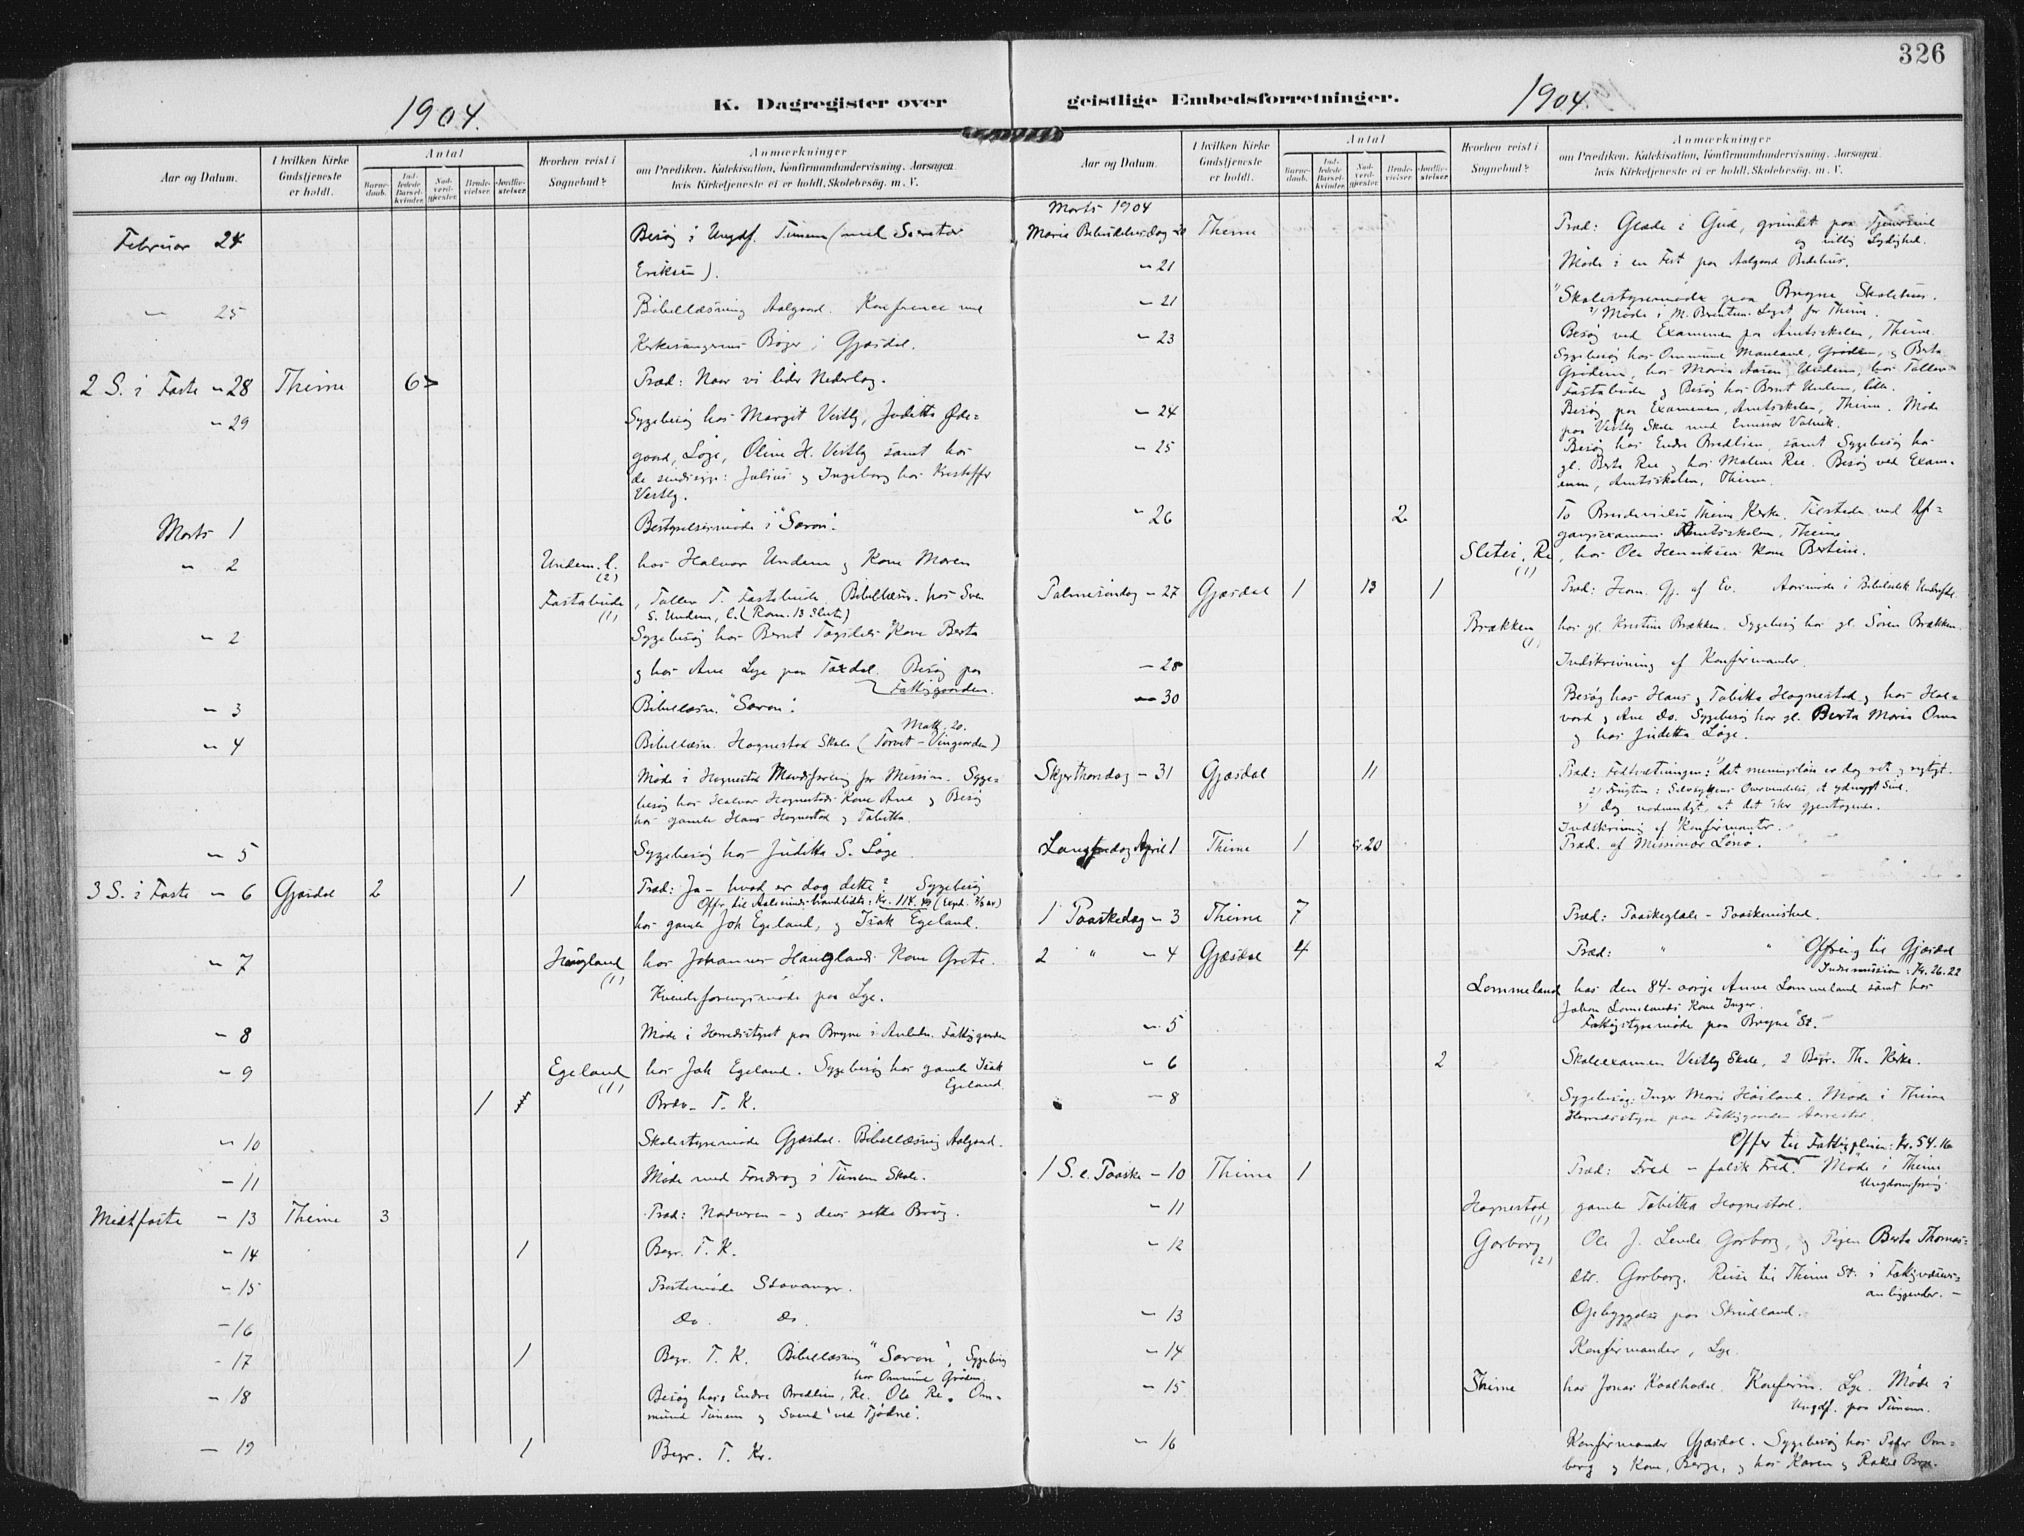 326
1904.
K. Dagregister over
geistlige Embedsforretninger.
1904
Aar og Datum.
I hvilken Kirke Gudstjeneste er holdt.
Antal
Barnedaab.
Indledede Barselkvinder.
Nadverdgjæster.
Brudevielser.
Jordfæstelser.
Hvorhen reist i Sognebud?
Anmærkninger
om Prædiken. Katekisation, Konfirmandundervisning. Aarsagen
hvis Kirketjeneste ei er holdt. Skolebesøg. m. V.
Februar 24
Besøg i Ungdf. Tunem (med Senator
Eriksen).
" 25
Bibellæsning Aalgaard. Konference med
Kirkesangerens Bøger i Gjæsdal.
2 S. i Faste " 28 Thime 6
Præd: Naar vi lider Nederlag.
" 29
Sygebesøg hos Margit Vestly, Juditta Øde=
gaard, Løge, Oline H. Vestly samt hos
de sindssyge: Julius og Ingeborg hos Kristoffer
Vestly.
Marts 1
Bestyrelsesmøde i "Saron".
" 2 Undem. l. (2) hos Halvor Undem og Kone Maren
Fastabude (1), Tallev T. Fastabude. Bibellæsn. hos Sven
S. Undem, l. (Rom. 13 Slut)
" 2
Sygebesøg hos Bernt Kone Berta
og hos Ane Lye paa Taxdal. Besøg paa
Fattiggaarden.
" 3
Bibellæsn. "Saron".
Math. 20.
" 4
Bibellæsn. Hognestad Skole (Torvet – Vingaarden)
Møde i Hognestad Mandsforening for Mission. Syge=
besøg hos Halvor Hognestads Kone Ane og Besøg
hos gamle Hans Hognestad og Tabitta.
" 5
Sygebesøg hos Juditta S. Løge
3 S. i Faste " 6 Gjæsdal 2 1
Præd: Ja – hvad er dog dette? Sygebesøg
Offr. til Aalesunds brandlidte: Kr. 114.
hos gamle Joh Egeland, og Isak Egeland.
" 7 Haugland (1) hos Johannes Hauglands Kone Grete.
Kvindeforeningsmøde paa Lye.
" 8
Møde i Herredsstyret paa Bryne i Anledn. Fattiggaarden
" 9 Egeland (1) hos Joh Egeland. Sygebesøg hos gamle Isak
Egeland
1
Brdv. T. K.
" 10
Skolestyremøde Gjæsdal. Bibellæsning Aalgaard.
" 11
Møde med Foredrag i Tunem Skole.
Midtfaste " 13 Thime 3
Præd: Nadveren – og dens rette Brug.
" 14 1
Begr. T. K.
" 15
Præstemøde Stavanger.
" 16
Do. Do.
" 17 1
Begr. T. K. Bibellæsning "Saron", Sygebesøg
hos Ommund Grødem
" 18
Besøg hos Endre Bredlien, Re. Ole Re. Om=
mund Tunem og Svend ved Tjødne.
" 19 1
Begr. T. Kr.
Aar og Datum.
I hvilken Kirke Gudstjeneste er holdt.
Antal
Barnedaab.
Indledede Barselkvinder.
Nadverdgjæster.
Brudevielser.
Jordfæstelser.
Hvorhen reist i Sognebud?
Anmærkninger
om Prædiken. Katekisation, Konfirmandundervisning. Aarsagen
hvis Kirketjeneste ei er holdt. Skolebesøg. m. V.
Marts 1904
Maria Bebudelsesdag 20 Thime
Præd: Glæde i Gud, grundet paa Tjenersind
og villig Lydighed.
" 21
Møde i en Fest paa Aalgaard Bedehus.
" 21
Skolestyremøde paa Bryne Skolehus.
2) Møde i M. Berentsens Legat for Thime.
" 23
Besøg ved Examenen paa Amtsskolen, Thime.
Sygebesøg hos Ommund Mauland, Grødem, og Berta
Grødem, hos Maria Aasen, Undem, hos Tallev
Fastabude og Besøg hos Bernt Undem, lille.
" 24
Besøg paa Examenen, Amtsskolen, Thime. Møde
paa Vestly Skole med Emissær Valvik.
" 25
Besøg hos Endre Bredlien, samt Sygebesøg hos
gl. Berta Ree og hos Malene Ree. Besøg ved Exam-
enen, Amtsskolen, Thime.
" 26 2
To Brudevielser Thime Kirke. Tilstede ved Af=
gangsexamen Amtsskolen, Thime
Sletei, Re (1), hos Ole Henriksens Kone Bertine.
Palmesøndag " 27 Gjæsdal 1 13 1
Præd: Hom. Gj. af Ev. Aarsmøde i Bibliotek
Brækken (1) hos gl. Kristine Brækken. Sygebesøg hos gl. Søren Brækken.
" 28
Indskrivning af Konfirmander.
" 30
Besøg hos Hans og Tabitta Hognestad og hos Hal=
vard og Ane Do. Sygebesøg hos gl. Berta Maria Omm
og hos Juditta Løge.
Skjærthorsdag " 31 Gjæsdal 11
Præd: Fodtvætningen: 1) det meningsløse er dog ret og rigtigt.
2) Frugten: Selvsygens Overvindelse, et ydmygt Sind.
3) Dog nødvendigt, at det sker gjentagende.
Indskrivning af Konfirmanter.
Langfredag April 1 Thime 1 20
Præd. af Missionær Lønø.
1 Paaskedag " 3 Thime 7
Præd: Paaskeglæde – Paaskenisthed.
2 " " 4 Gjæsdal 4
Præd: " " Ofring til Gjæsdal
Indremission: Kr. 26.22
Lommeland hos den 84-aarige Anna Lommeland samt hos
Johan Lomelands Kone Inger.
" 5
Fattigstyremøde paa Bryne St.
" 6 2
Skoleexamen Vestly Skole, 2 Begr. Th. Kirke.
" 8
Sygebesøg: Inger Marie Høiland. Møde i Thime
Herredsstyre paa Fattiggaarden
Offer til Fattigpleien: Kr. 54.16
1 S. e. Paaske " 10 Thime 1
Præd: Fred – falsk Fred. Møde i Thime
Ungdomsforeng.
" 11 Hognestad (1), gamle Tabitta Hognestad.
" 12 Garborg (2) Ole J. Lende Garborg, og Pigen Berta Thomas=
dtr. Garborg. Reise til Thime St. i Fattigvæsens-
anliggender. –
" 13
Opbyggelse paa Skrudland.
" 14
Konfirmander, Lye.
" 15 Thime hos Jonas Kaalhodal. Konfirm. Lye. Møde i
Ungdf. paa Tunem.
" 16
Konfirmander Gjæsdal. Sygebesøg hos Peder Om=
berg og Kone, Berge, og hos Karen og Rakel